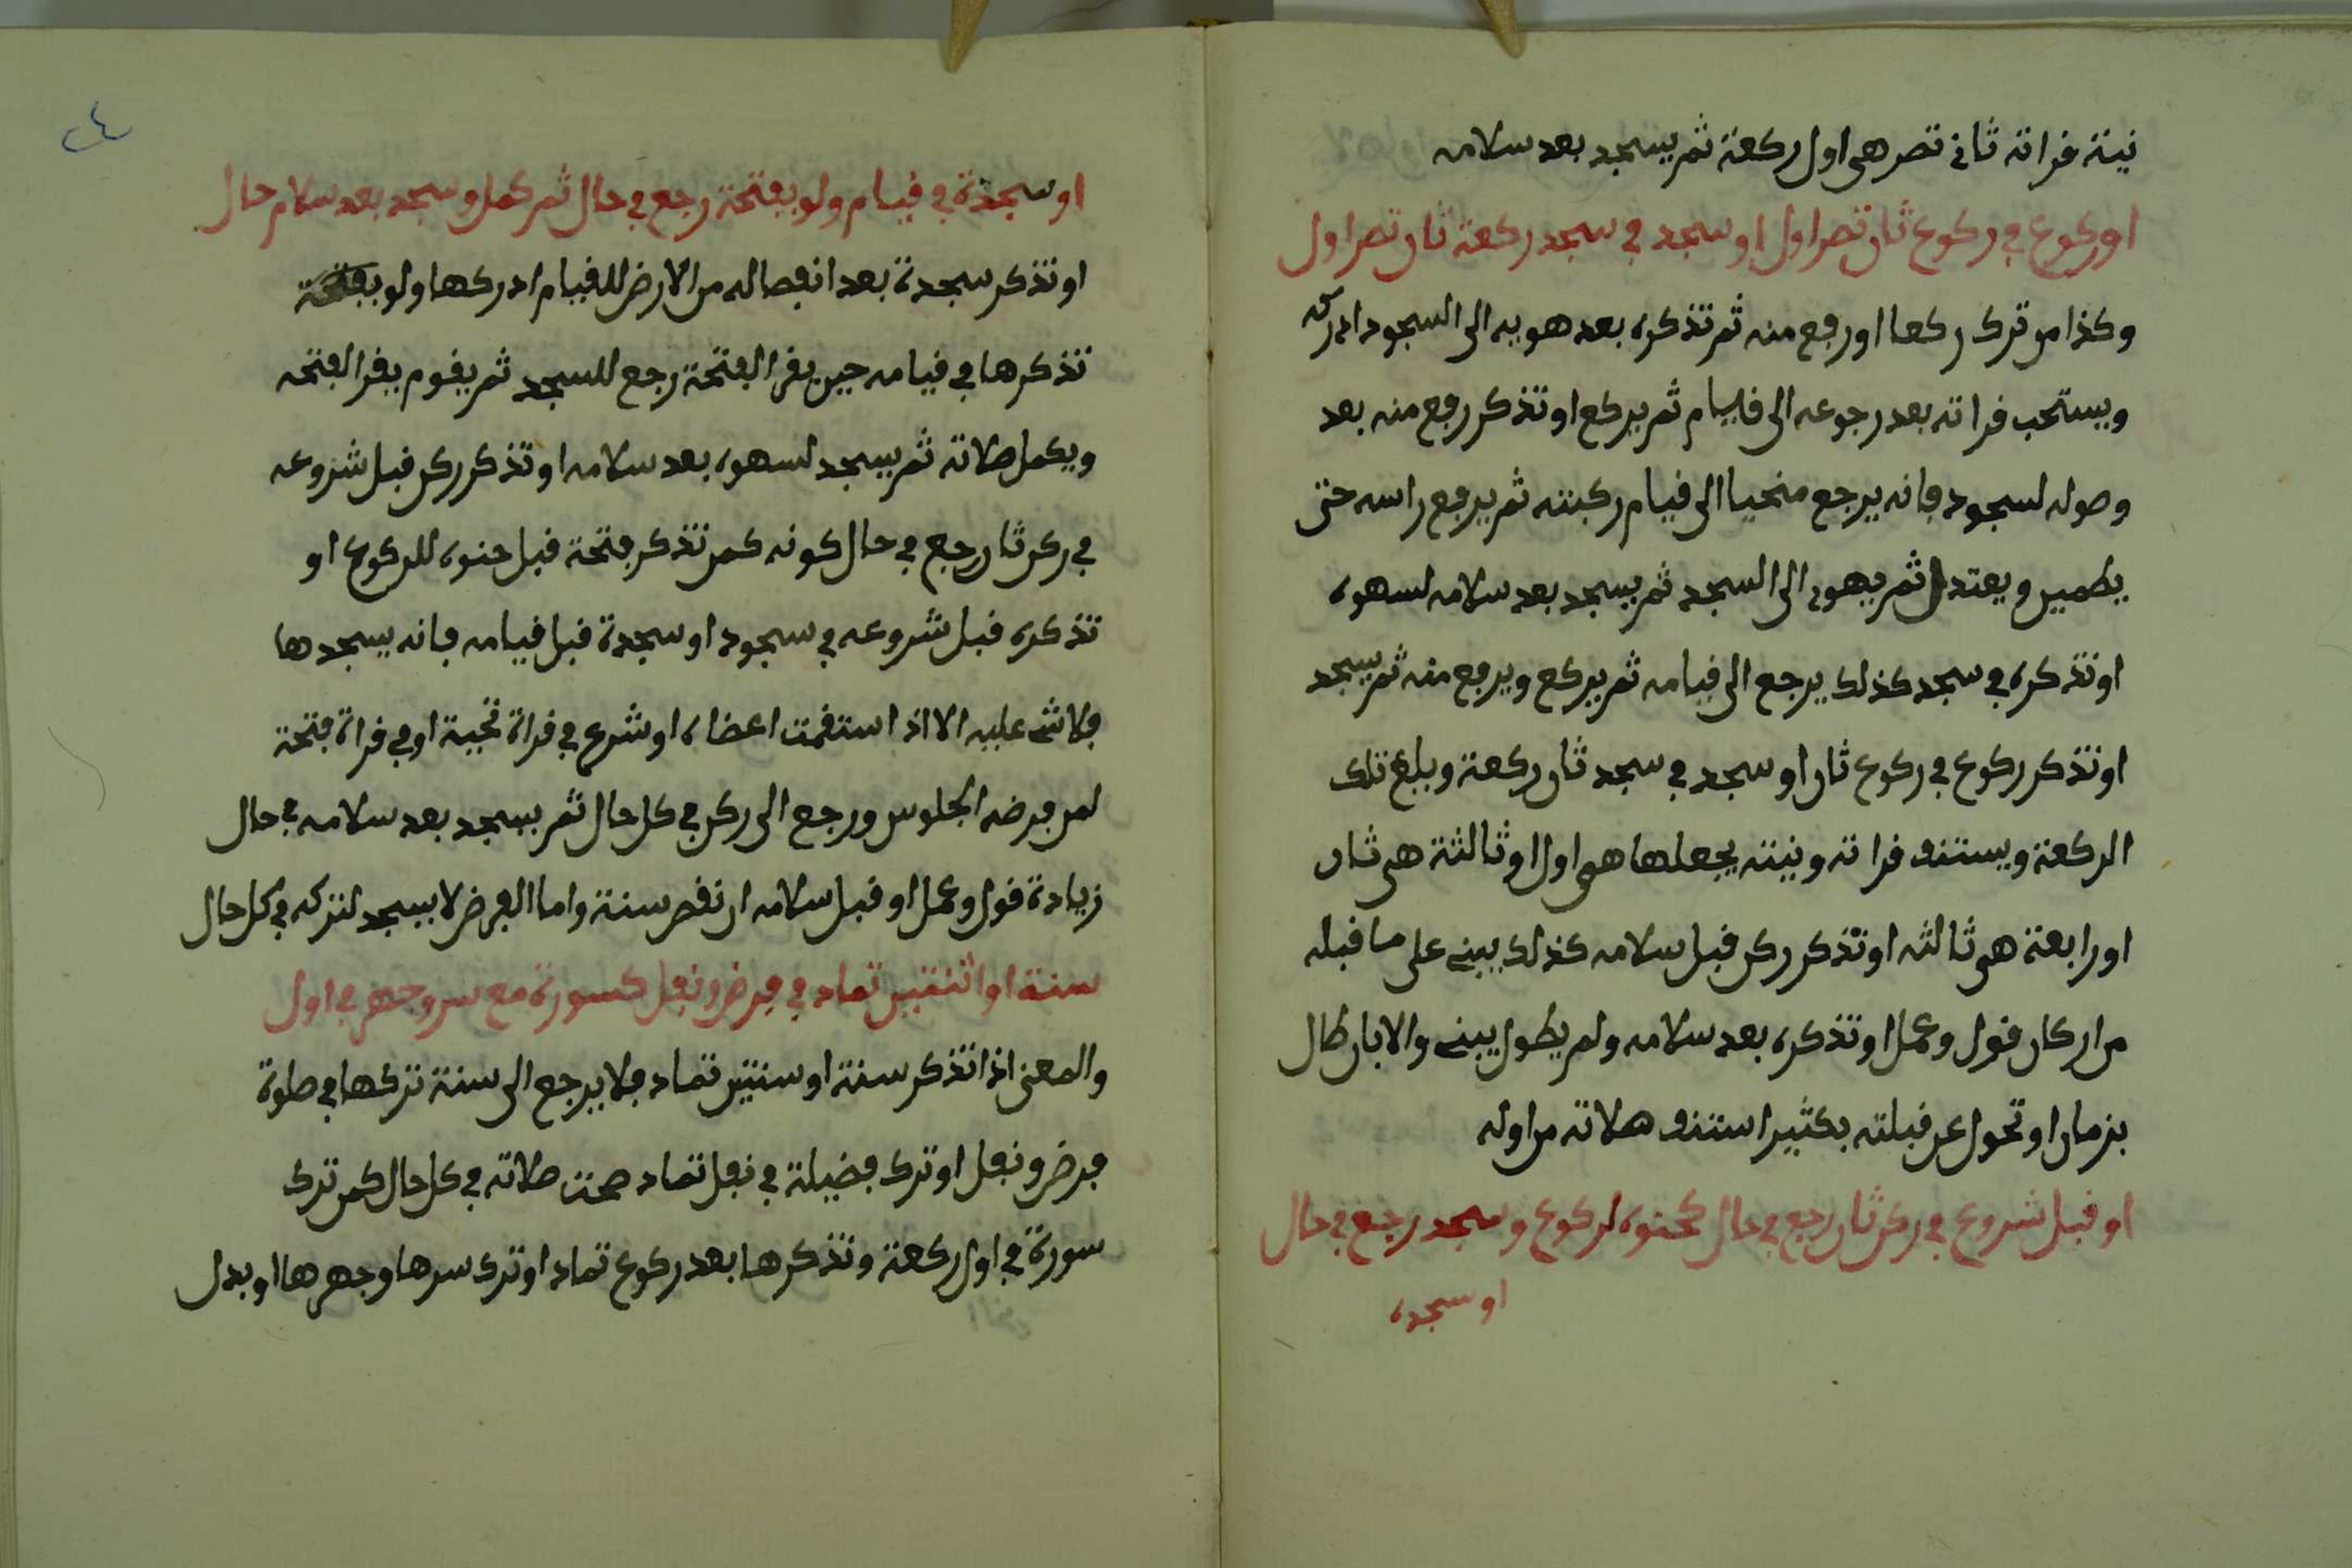 نيتة فراته ثاني تصر هي اول ركعة ثم يسجد بعد سلامه
اوركوع في ركوع ثان تصر اول او سجد في سجد ركعة ثان تصر اول
وكذا من ترك ركعا اورفع منه ثم تذكره بعد هويه الى السجود ادركه
ويستحب فراته بعد رجوعه الى فيام ثم يركع او تذكر رفع منه بعد
وصوله لسجود فانه يرجع منحيا الى فيام ركبته ثم يرفع راسه حتى
يطمين ويعتدل ثم يهوي الى السجد ثم يسجد بعد سلامه لسهوه
او تذكره في سجد كذلك يرجع الى فيامه ثم يركع ويرفع منه ثم يسجد
او تذكر ركوع في ركوع ثان او سجد في سجد ثان ركعة وبلغ تلك
الركعة ويستنف فراته ونيته يجعلها هي اول او ثالثة هي ثان
او رابعة هي ثالثه او تذكر ركن فبل سلامه كذلك يبني على ما فبله
من اركان فول وعمل او تذكره بعد سلامه ولم يطول يبني والا بان طال
بزمان او تحول عن فبلته بكثير استنف صلاته من اوله
او فبل شروع في ركن ثان رجع في حال كحنوه لركوع وسجد رجع في حال
او سجده
٢٤
او سجدة في فيام ولو بفتحة رجع في حال ثم كمل وسجد بعد سلام حال
او تذكر سجدة بعد انفصاله من الارض للفيام ادركها ولو بفتحة
تذكرها في فيامه حين يفرا الفتحة رجع للسجد ثم يفوم يفرا الفتحه
ويكمل صلاته ثم يسجد لسهوه بعد سلامه او تذكر ركن فبل شروعه
في ركن ثان رجع في حال كونه كمن تذكر فتحة فبل حنوه للركوع او
تذكره فبل شروعه في سجود او سجدة فبل فيامه فانه يسجدها
فلا شي عليه الا اذا استفمت اعضاه او شرع في فراة تحية او في فراة فتحة
لمن فرضه الجلوس ورجع الى ركن في كل حال ثم يسجد بعد سلامه في حال
زيادة فول وعمل او فبل سلامه ان نفص سنة واما الفرض لا يسجد لتركه في كل حال
سنة او اثنتين تماد في فرض ونفل كسورة مع سر وجهر في اول
والمعنى اذا تذكر سنة او سنتين تماد فلا يرجع الى سنة تركها في صلوة
فرض ونفل او ترك فضيلة في نفل تماد صحت صلاته في كل حال كمن ترك
سورة في اول ركعة وتذكرها بعد ركوع تماد او ترك سرها وجهرها او بدل